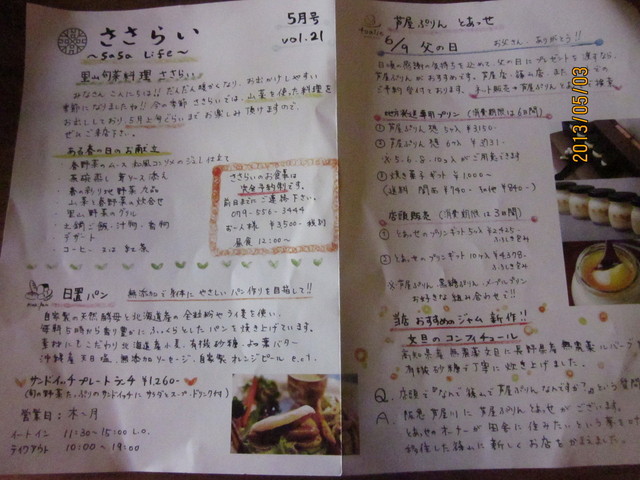 ささらい
~sasa Life~
5月号
vol.21
里山旬菜料理 ささらい
みなさん こんにちは!! だんだん暖かくなり、お出かけしやすい
季節になりましたね!! 今の季節 ささらいでは、山菜を使った料理を
お出ししており 5月上旬ぐらいまで お楽しみ頂けますので、
ぜひご来店下さい。
ある春の日のお献立
春野菜のムース 和風コンソメのジュレ仕立て
春の彩り地野菜 九品
山菜と春野菜の炊合せ
・里山野菜のグリル
・土鍋ご飯・汁物・香物
・デザート
・コーヒー or 紅茶
ささらいのお食事は
完全予約制です。
前日までにご連絡下さい。
079-556-3444
お一人様 ¥3500- 税別
昼食 12:00~
日置パン 無添加で身体に やさしいパン作りを目指して!!
自家製の天然酵母と北海道産の全粒粉やライ麦を使い、
毎朝5時から香り豊かにふっくらとしたパンを焼き上げています。
素材にもこだわり 北海道小麦、有機砂糖、よつ葉バター
沖縄産天日塩、無添加ソーセージ、自家製オレンジピール e.c.t.
サンドイッチプレートランチ ¥1,260-
(旬の野菜たっぷりのサンドイッチに サラダ、スープ、ドリンク付)
営業日:木~月
イートイン 11:30~15:00 L.O.
テイクアウト 10:00~19:00
芦屋ぷりん とあっせ
6/9 父の日 お父さん、ありがとう!!
日頃の感謝の気持ちを込めて、父の日にプレゼントを渡すなら
芦屋ぷりんがおすすめです。芦屋店・篠山店、また
ご予約受けております。
地方発送専用プリン (消費期限は6日間)
① 芦屋ぷりん 憩 5ヶ入 ¥3150-
② 芦屋ぷりん 憩 6ヶ入
※ 5、6、8、10ヶ入がご用意できます
③ 焼き菓子ギフト ¥1,000~
(送料 関西 ¥740- その他 ¥840-)
店頭販売 (消費期限は3日間)
① とあっせのプリンギフト 5ヶ入 ¥2,425-
② とあっせのプリンギフト 10ヶ入 ¥4,378-
※芦屋ぷりん、黒糖ぷりん、メープルプリン
お好きな組み合わせで!!
当店おすすめのジャム 新作!!
文旦のコンフィチュール
高知県産 無農薬文旦に長野県産 無農薬ルバーブ
有機砂糖で丁寧に炊き上げました。
Q. 店頭で「なんで篠山で芦屋ぷりんなんですか?」という質問
A. 阪急芦屋川に 芦屋ぷりん とあっせがございます。
とあっせのオーナーが田舎に住みたいという夢を
移住した篠山に新しくお店をかまえました。
2013/05/03